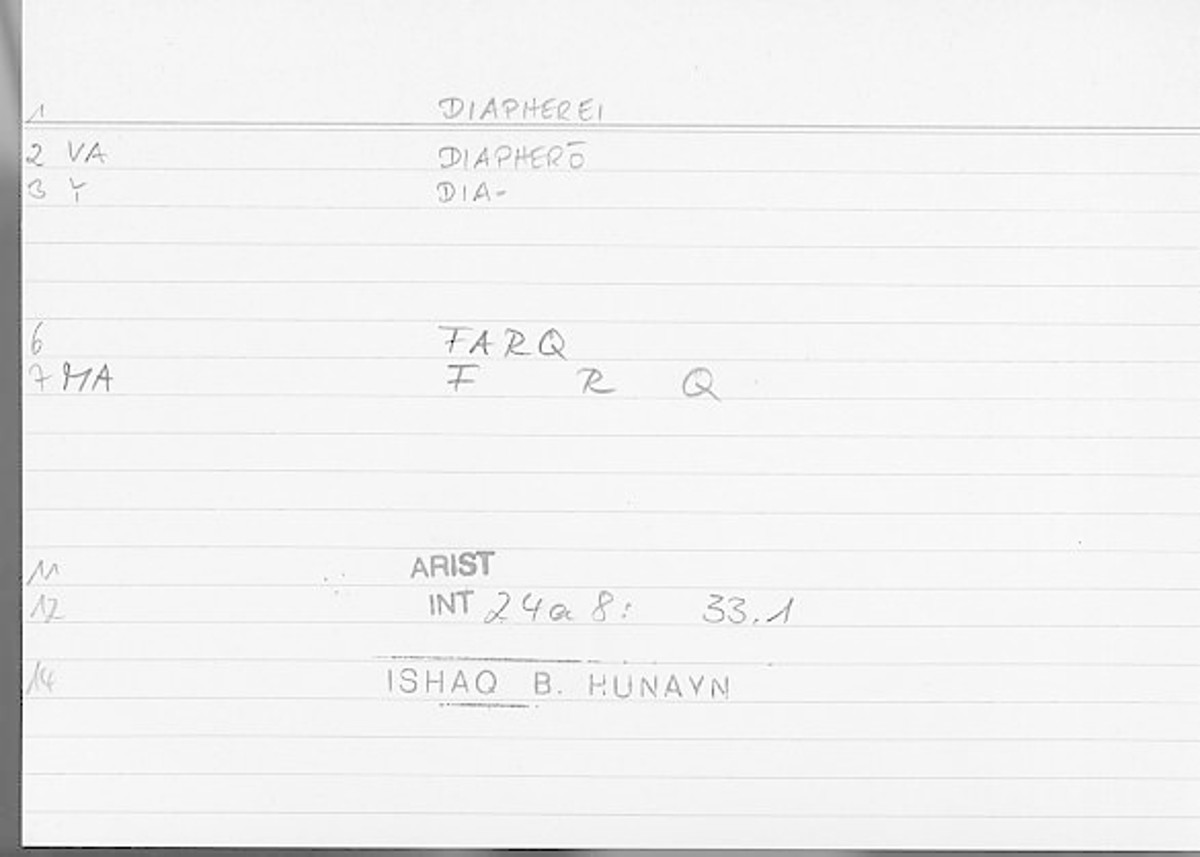 1 DIAPHEREI
2 VA DIAPHERŌ
3 Y DIA-
6 FARQ
7 MA F R Q
11 ARIST
12 INT 24a8: 33.1
14 ISHAQ B. HUNAYN